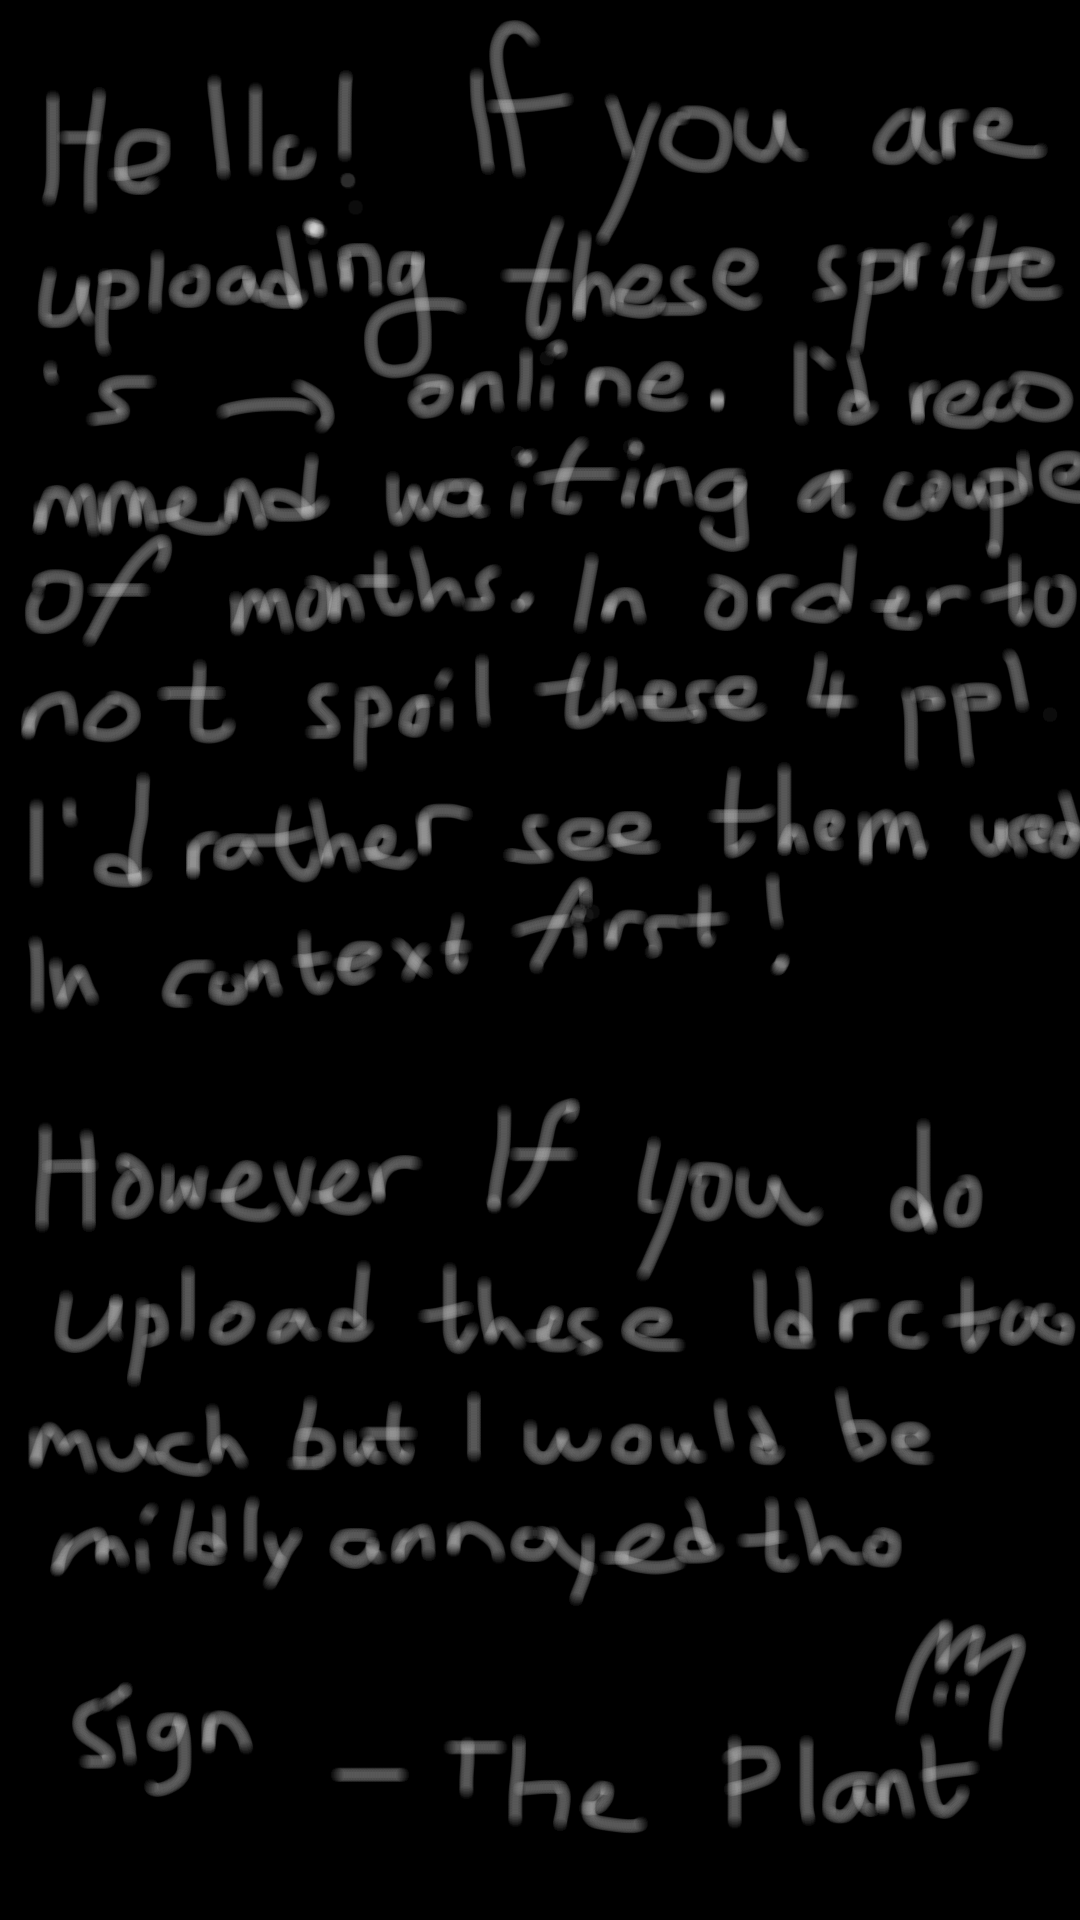 Hello! If you are
uploading these sprite
's → online. I'd reco
mmend waiting a couple
of months. In order to
not spoil these 4 ppl.
I'd rather see them used
In context first!
However If you do
upload these Idrc too
much but I would be
mildly annoyed tho
sign — The Plant